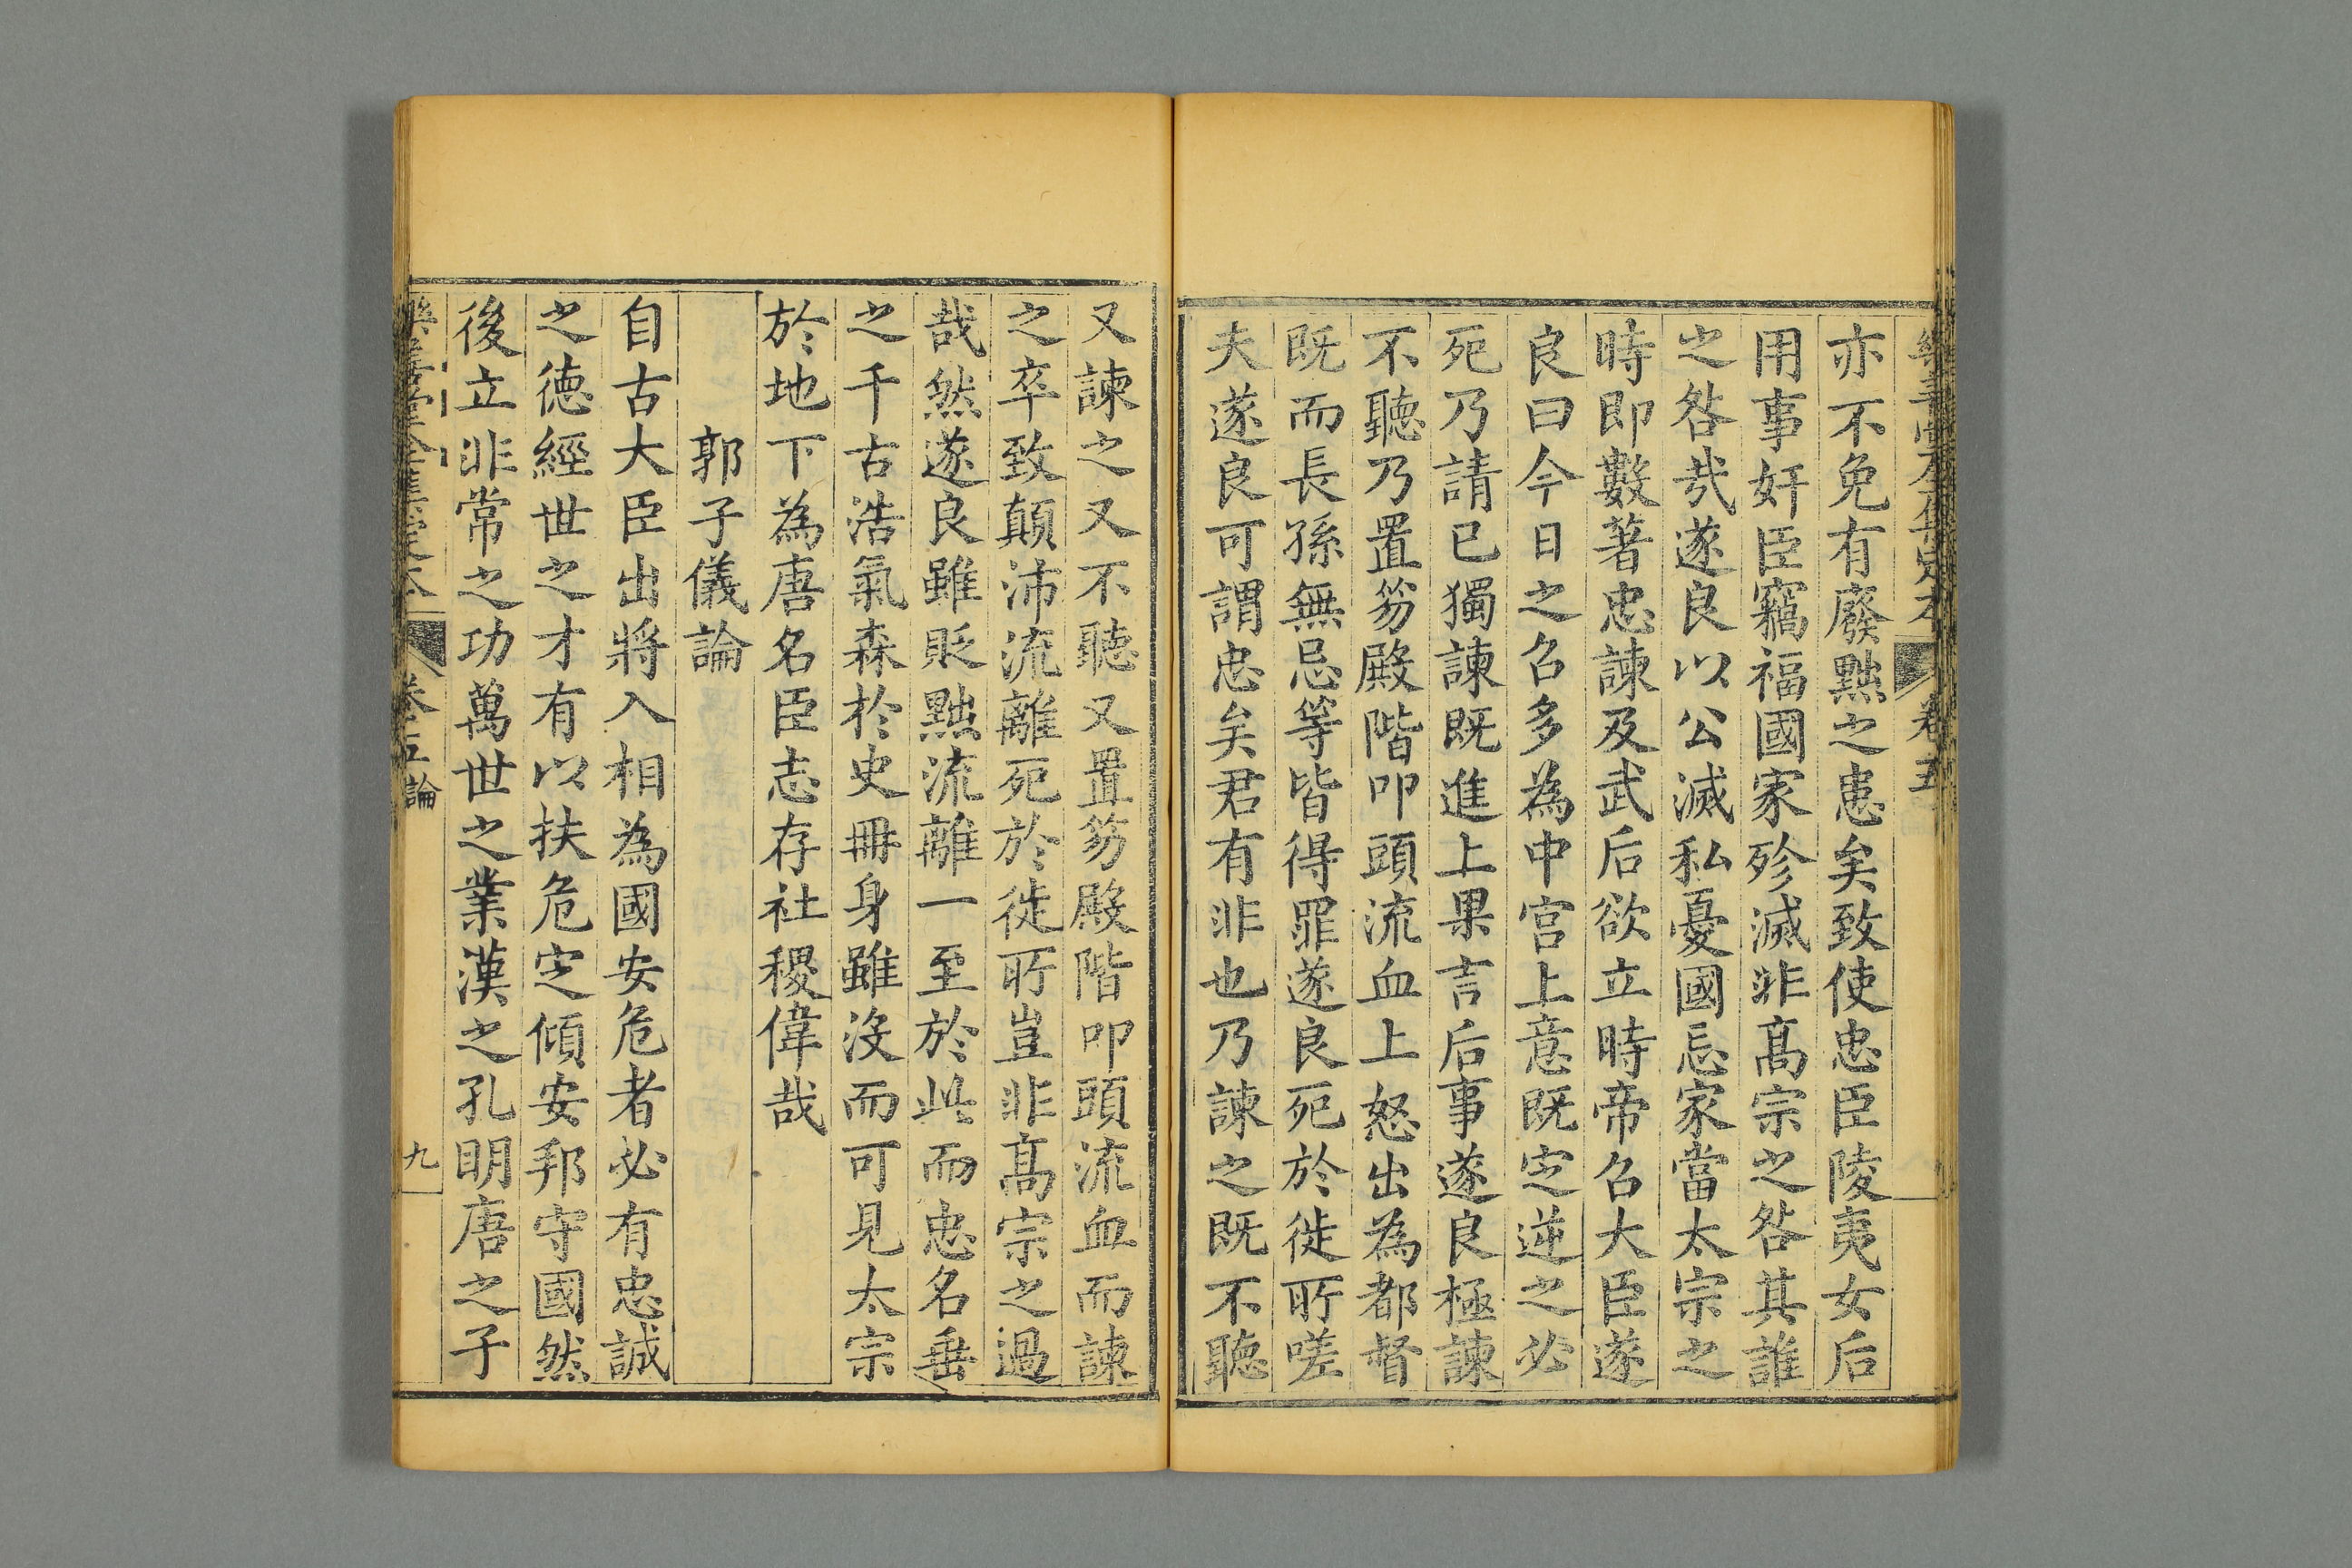 亦不免有廢黜之患矣致使忠臣陵夷女后
用事奸臣竊福國家殄滅非髙宗之咎其誰
之咎㢤遂良以公滅私憂國忘家當太宗之
時即數著忠諫及武后欲立時帝召大臣遂
良曰今日之召多為中宫上意既定逆之必
死乃請已獨諫既進上果言后事遂良極諫
不聽乃置笏殿階叩頭流血上怒出為都督
既而長孫無忌等皆得罪遂良死於徙所嗟
夫遂良可謂忠矣君有非也乃諫之既不聽
又諫之又不聽又置笏殿階叩頭流血而諫
之卒致顛沛流離死於徙所豈非髙宗之過
哉然遂良雖貶黜流離一至於此而忠名垂
之千古浩氣森於史冊身雖沒而可見太宗
於地下為唐名臣志存社稷偉哉
郭子儀論
自古大臣出將入相為國安危者必有忠誠
之德經世之才有以扶危定傾安邦守國然
後立非常之功萬世之業漢之孔明唐之子
卷五論
九